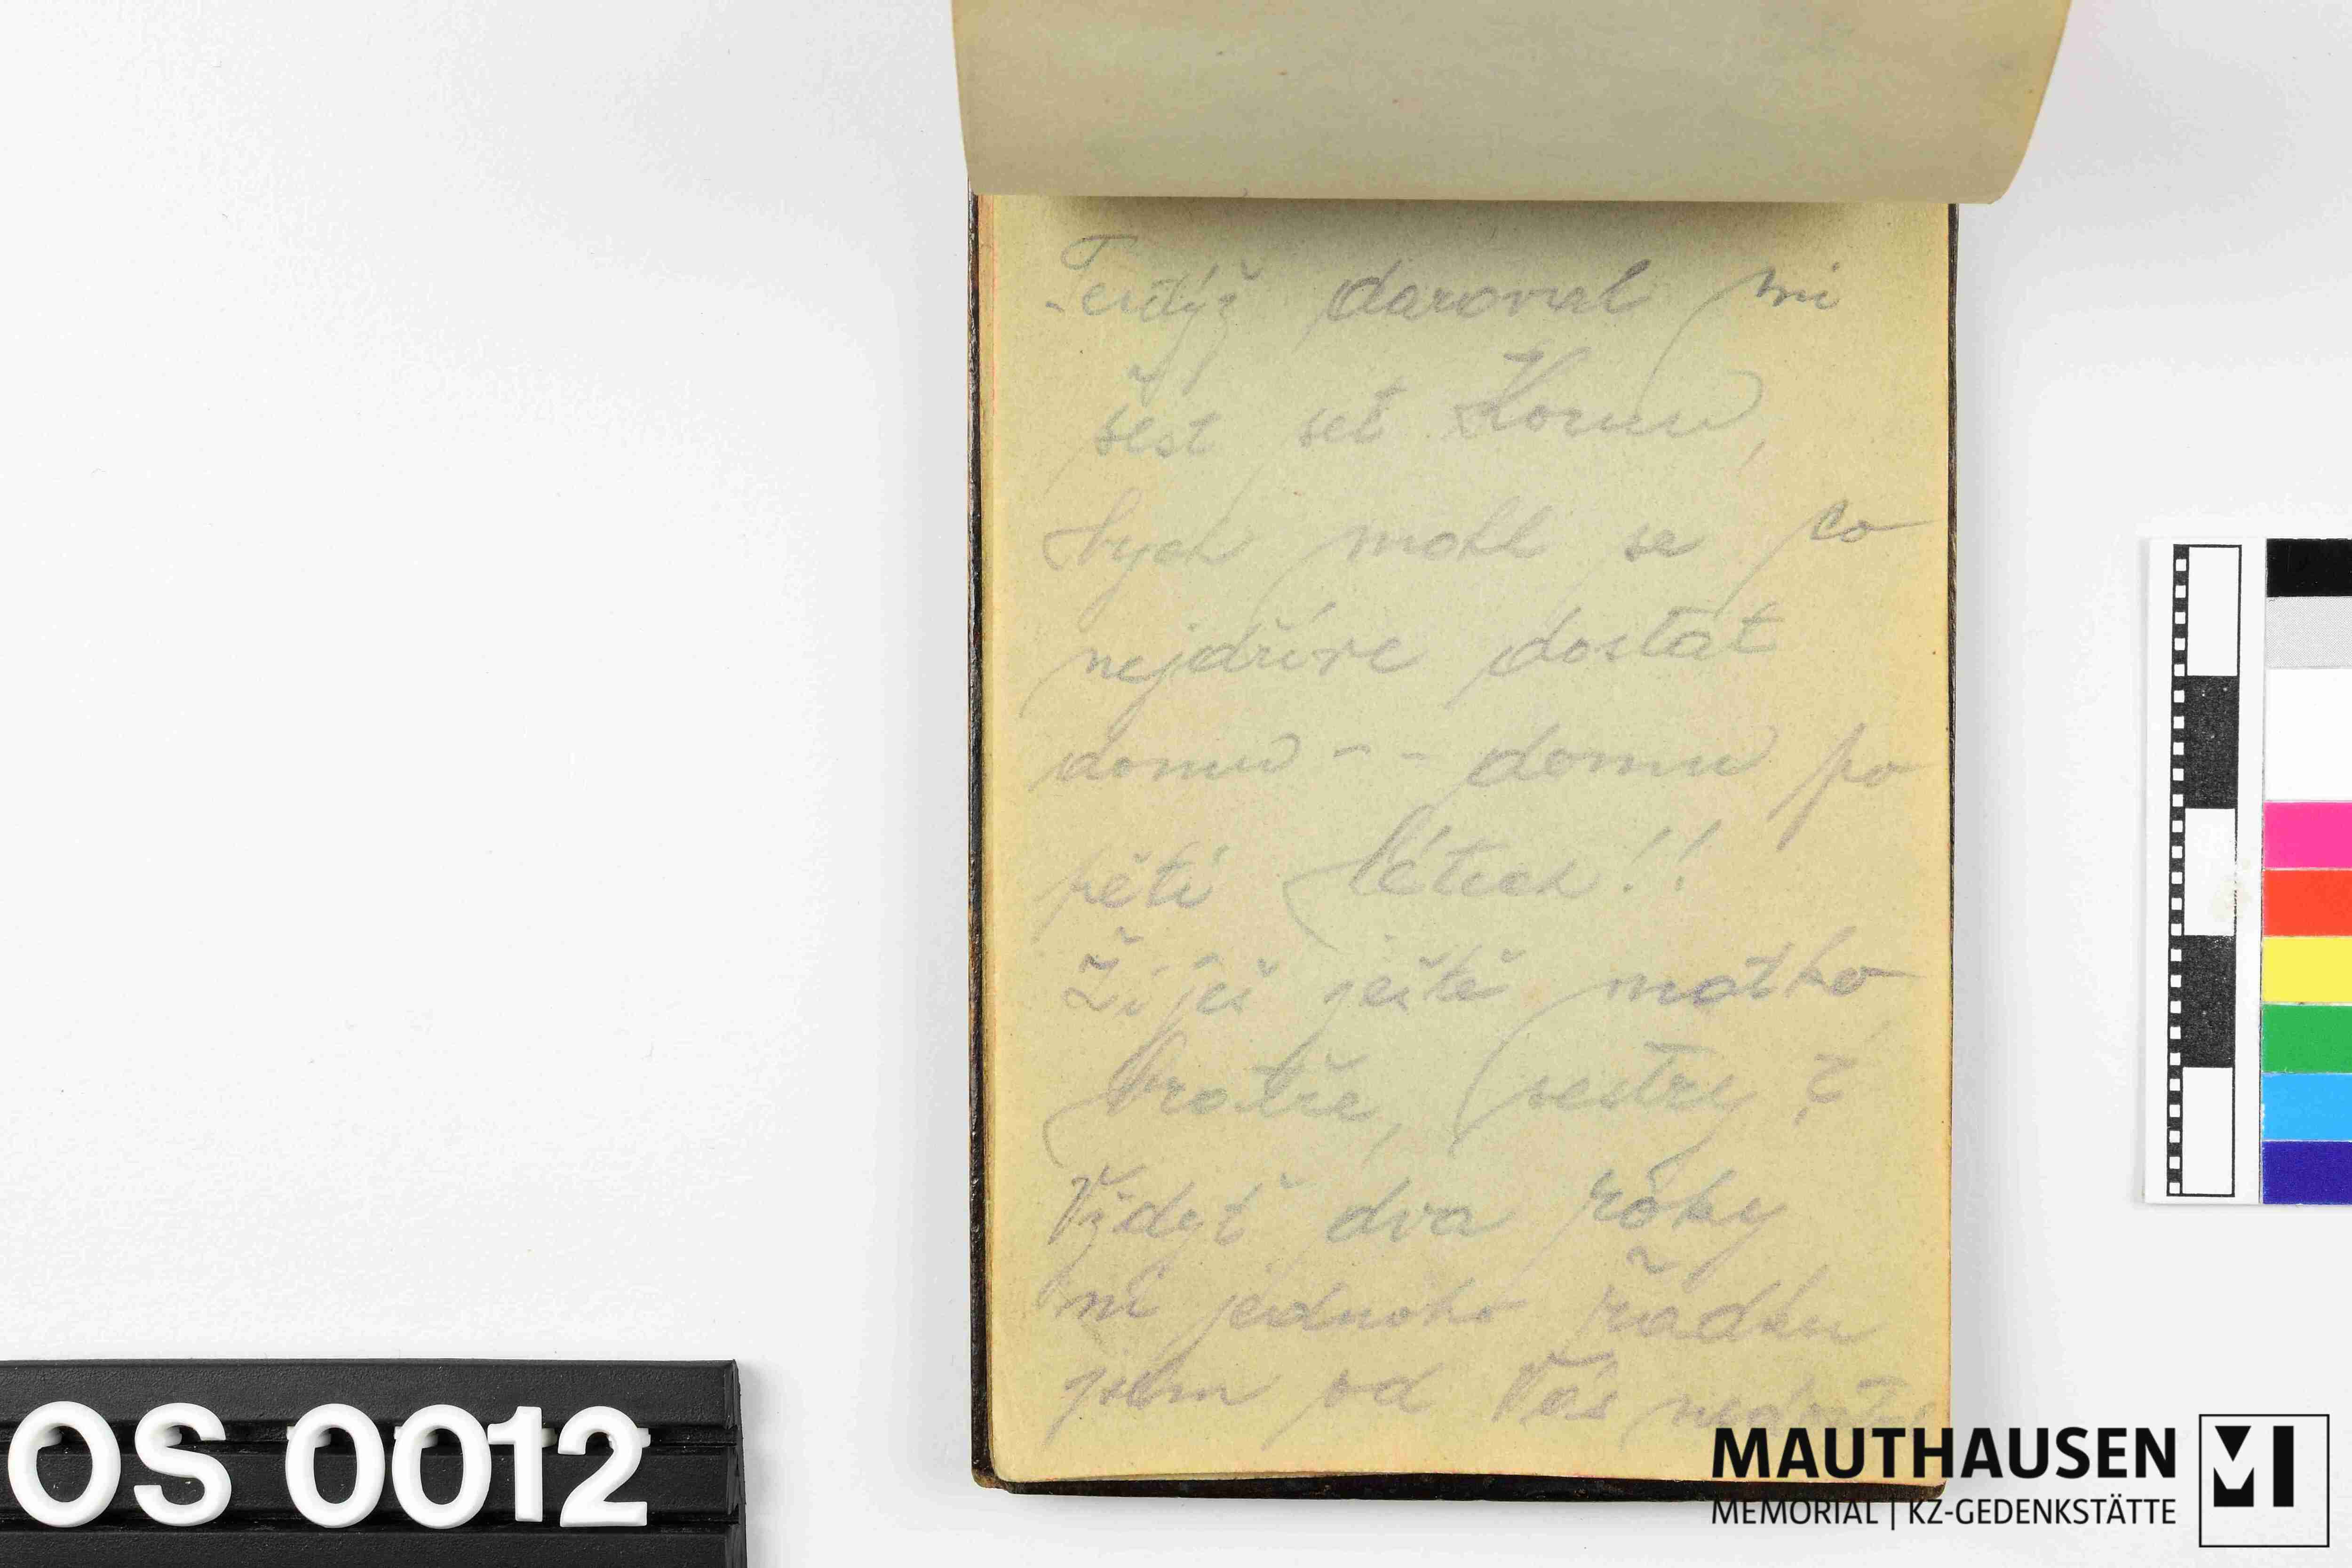 daroval mi
šest set Korun,
bych mohl se co
nejdříve dostat
domu - - domu po
pěti létech!!
Žiješ ještě matko
bratře, sestry?
Vždyť dva roky
ni jednoho řádku
jsem od Vás
OS 0012
MAUTHAUSEN
MEMORIAL | KZ-GEDENKSTÄTTE